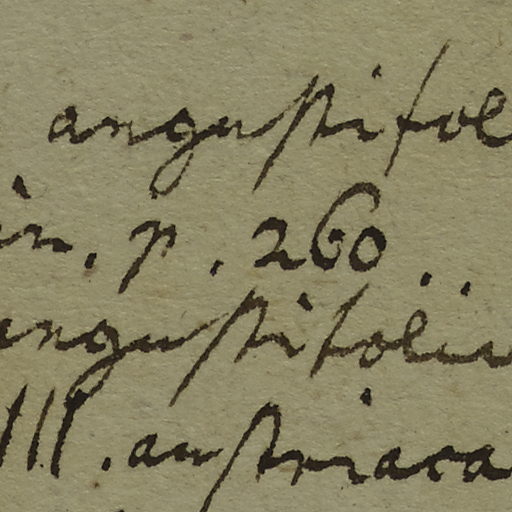 angustifol
in. p. 260..
angustifoliu
Ill. austriaca